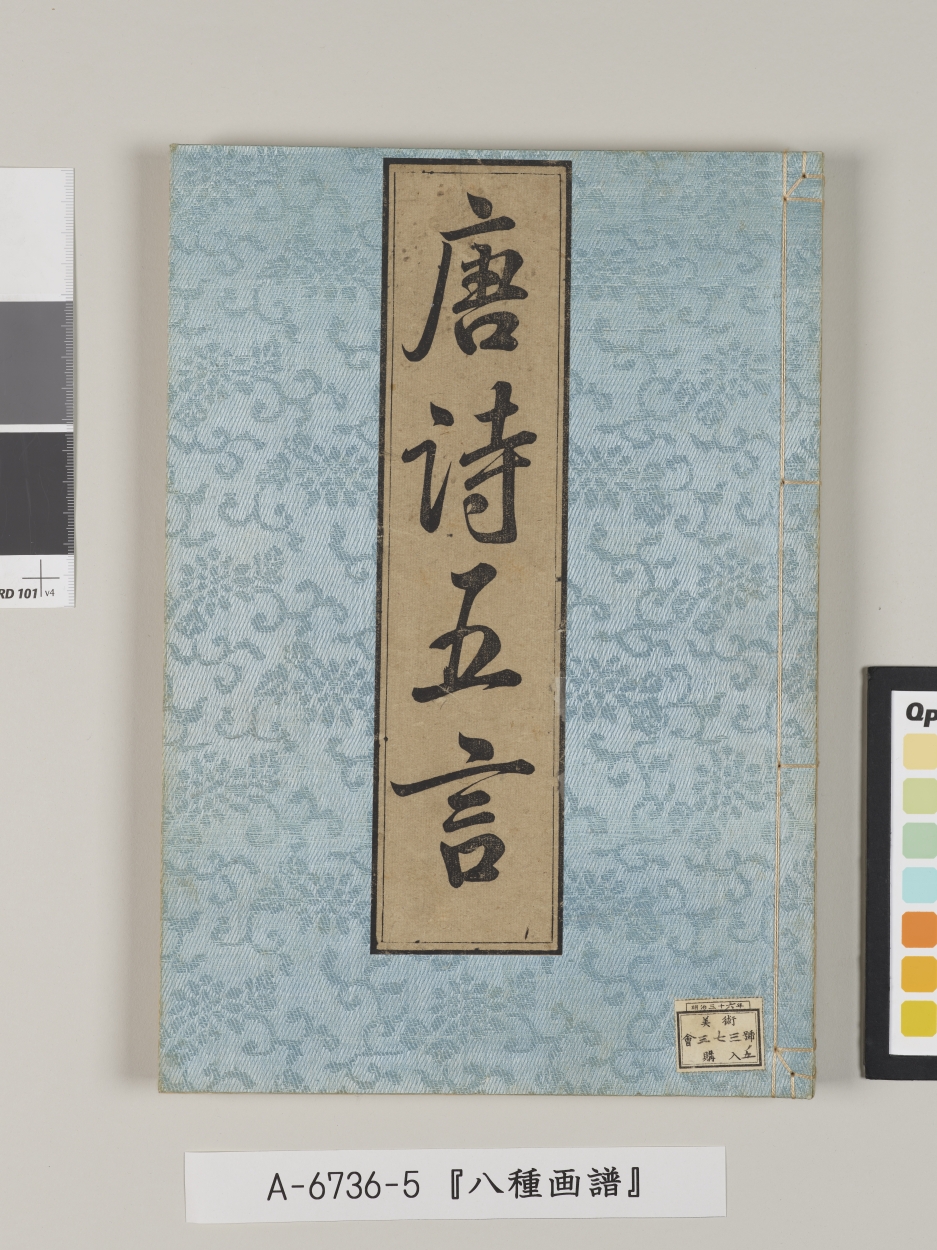 唐诗五言
明治三十六年
美術
會三七三號
購入
五
A-6736-5『八種画譜』
RD 101 v4
Qp